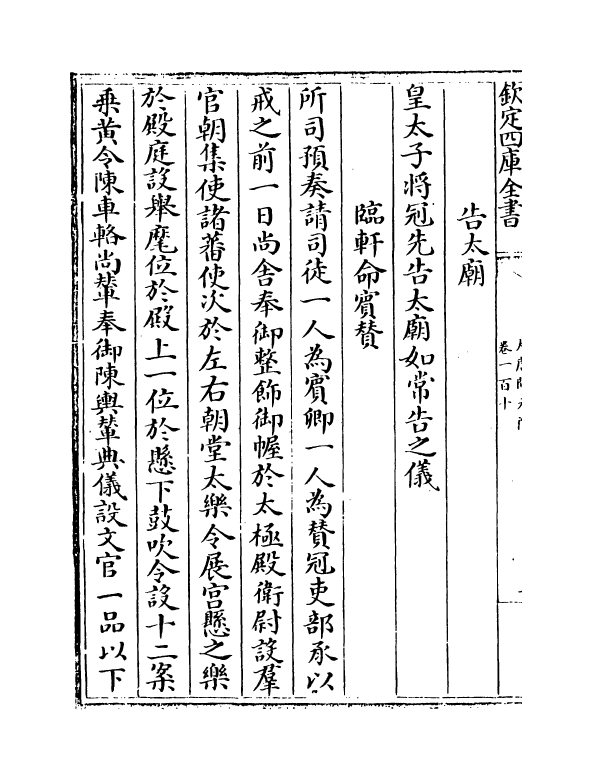 欽定四庫全書
卷一百十
告太廟
皇太子將冠先告太廟如常告之儀
臨軒命賓贊
所司預奏請司徒一人為賓卿一人為贊冠吏部承以
戒之前一日尚舍奉御整飾御幄於太極殿衛尉設羣
官朝集使諸蕃使次於左右朝堂太樂令展宫懸之樂
於殿庭設舉麾位於殿上一位於懸下鼓吹令設十二案
乗黄令陳車輅尚輦奉御陳輿輦典儀設文官一品以下